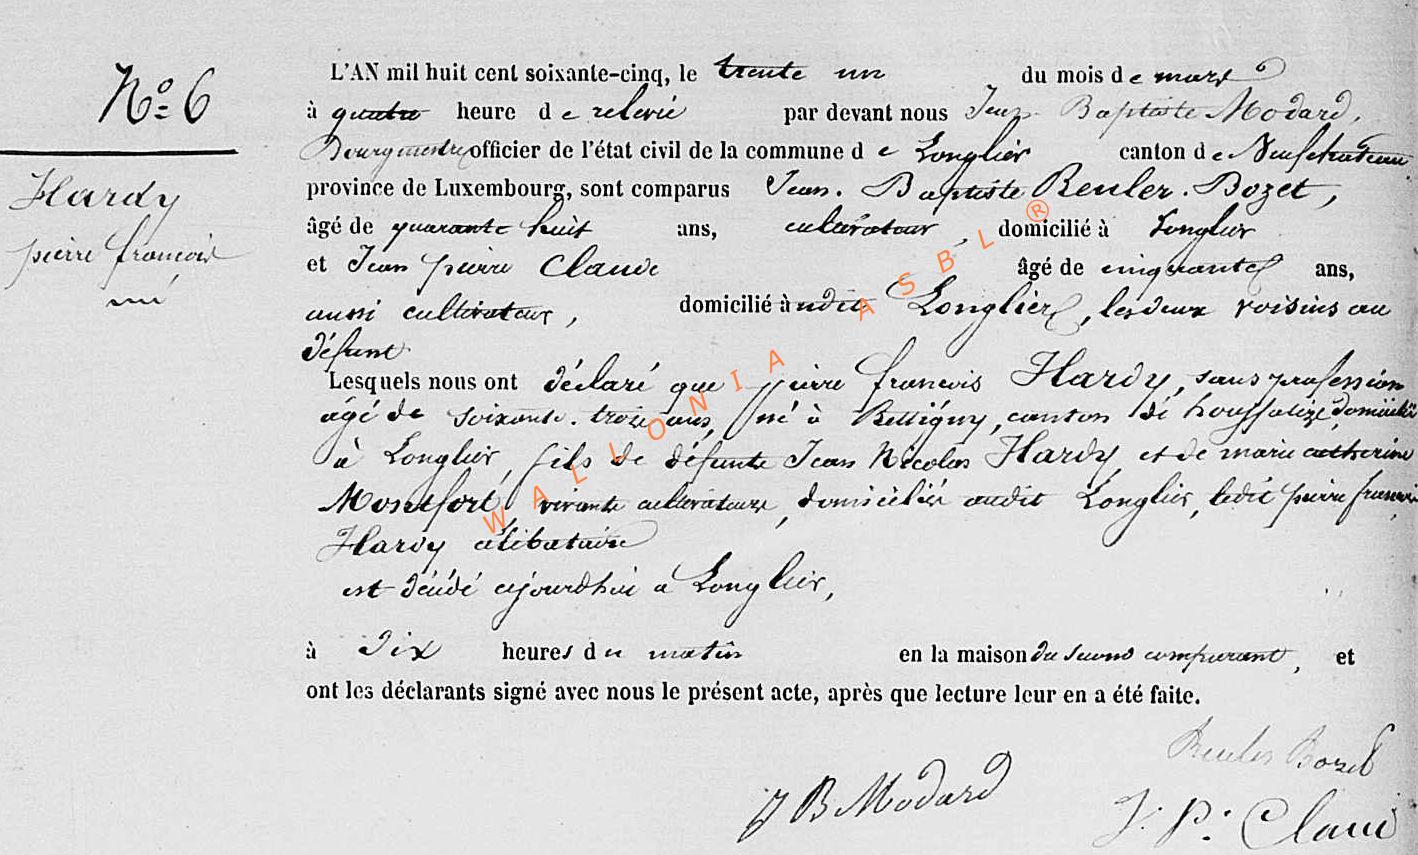 No 6
Hardy
pierre francois
L'AN mil huit cent soixante-cinq, le trente un du mois de mars
à quatre heure de relevé par devant nous Jean Baptiste Modard,
Bourgmestre officier de l'état civil de la commune de Longlier canton de Neufchateau
province de Luxembourg, sont comparus Jean Baptiste Beuler Bozet,
âgé de quarante huit ans, cultivateur, domicilié à Longlier
et Jean pierre Claude âgé de cinquante ans,
aussi cultivateur, domicilié à udit Longlier, les deux voisins au
défunt
Lesquels nous ont déclaré que pierre francois Hardy, sans profession
âgé de soixante trois ans, né à Bettigny, canton de houffalize, domicilié
à Longlier, fils de défunts Jean Nicolas Hardy et de marie catherine
Montfort, vivants cultivateurs, domiciliés audit Longlier, ledit pierre francois
Hardy célibataire
est décédé ajourdhui a Longlier,
à dix heures du matin en la maison du second comparant, et
ont les déclarants signé avec nous le présent acte, après que lecture leur en a été faite.
Beuler Bozet
J B Modard
J. P. Claude
WALLONIA ASBL ®